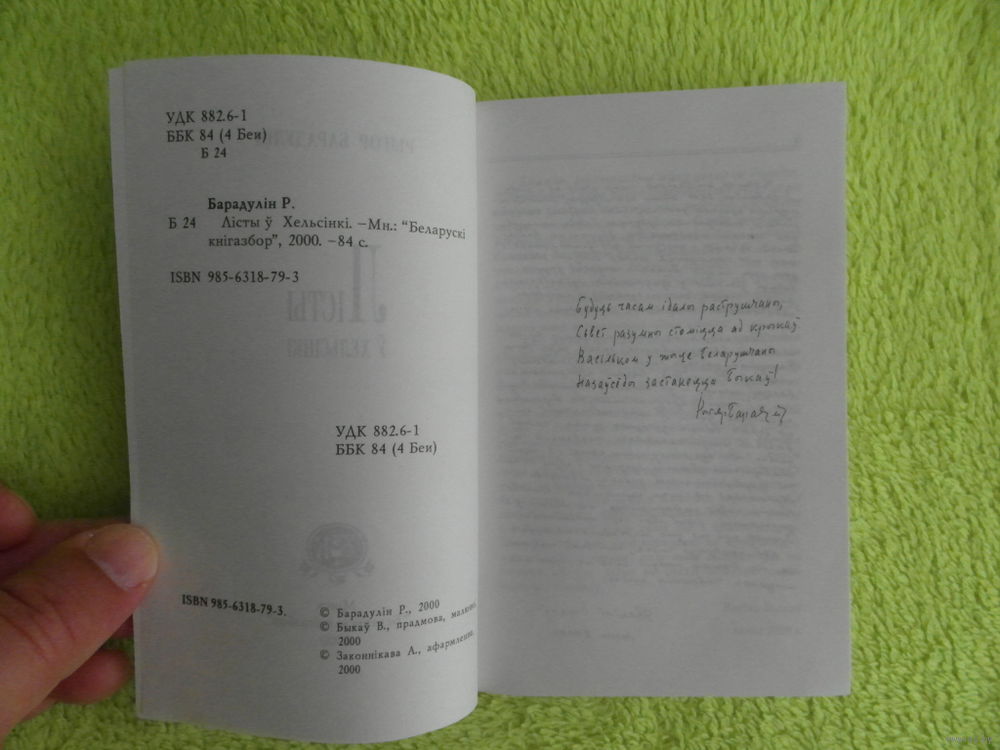 УДК 882.6-1
ББК 84 (4 Беи)
Б 24
Барадулін Р.
Б 24 Лісты ў Хельсінкі. –Мн.: “Беларускі
кнігазбор”, 2000. –84 с.
ISBN 985-6318-79-3
УДК 882.6-1
ББК 84 (4 Беи)
ISBN 985-6318-79-3.
© Барадулін Р., 2000
© Быкаў В., прадмова, малюнкі,
2000
© Законнікава А., афармленне,
2000
Будуць часам ідалы раструшчаны,
Сьвет разумны стоміцца ад крыкаў
Васільком у жыце Беларушчыны
Назаўсёды застанецца Быкаў!
Рыгор Барадулін